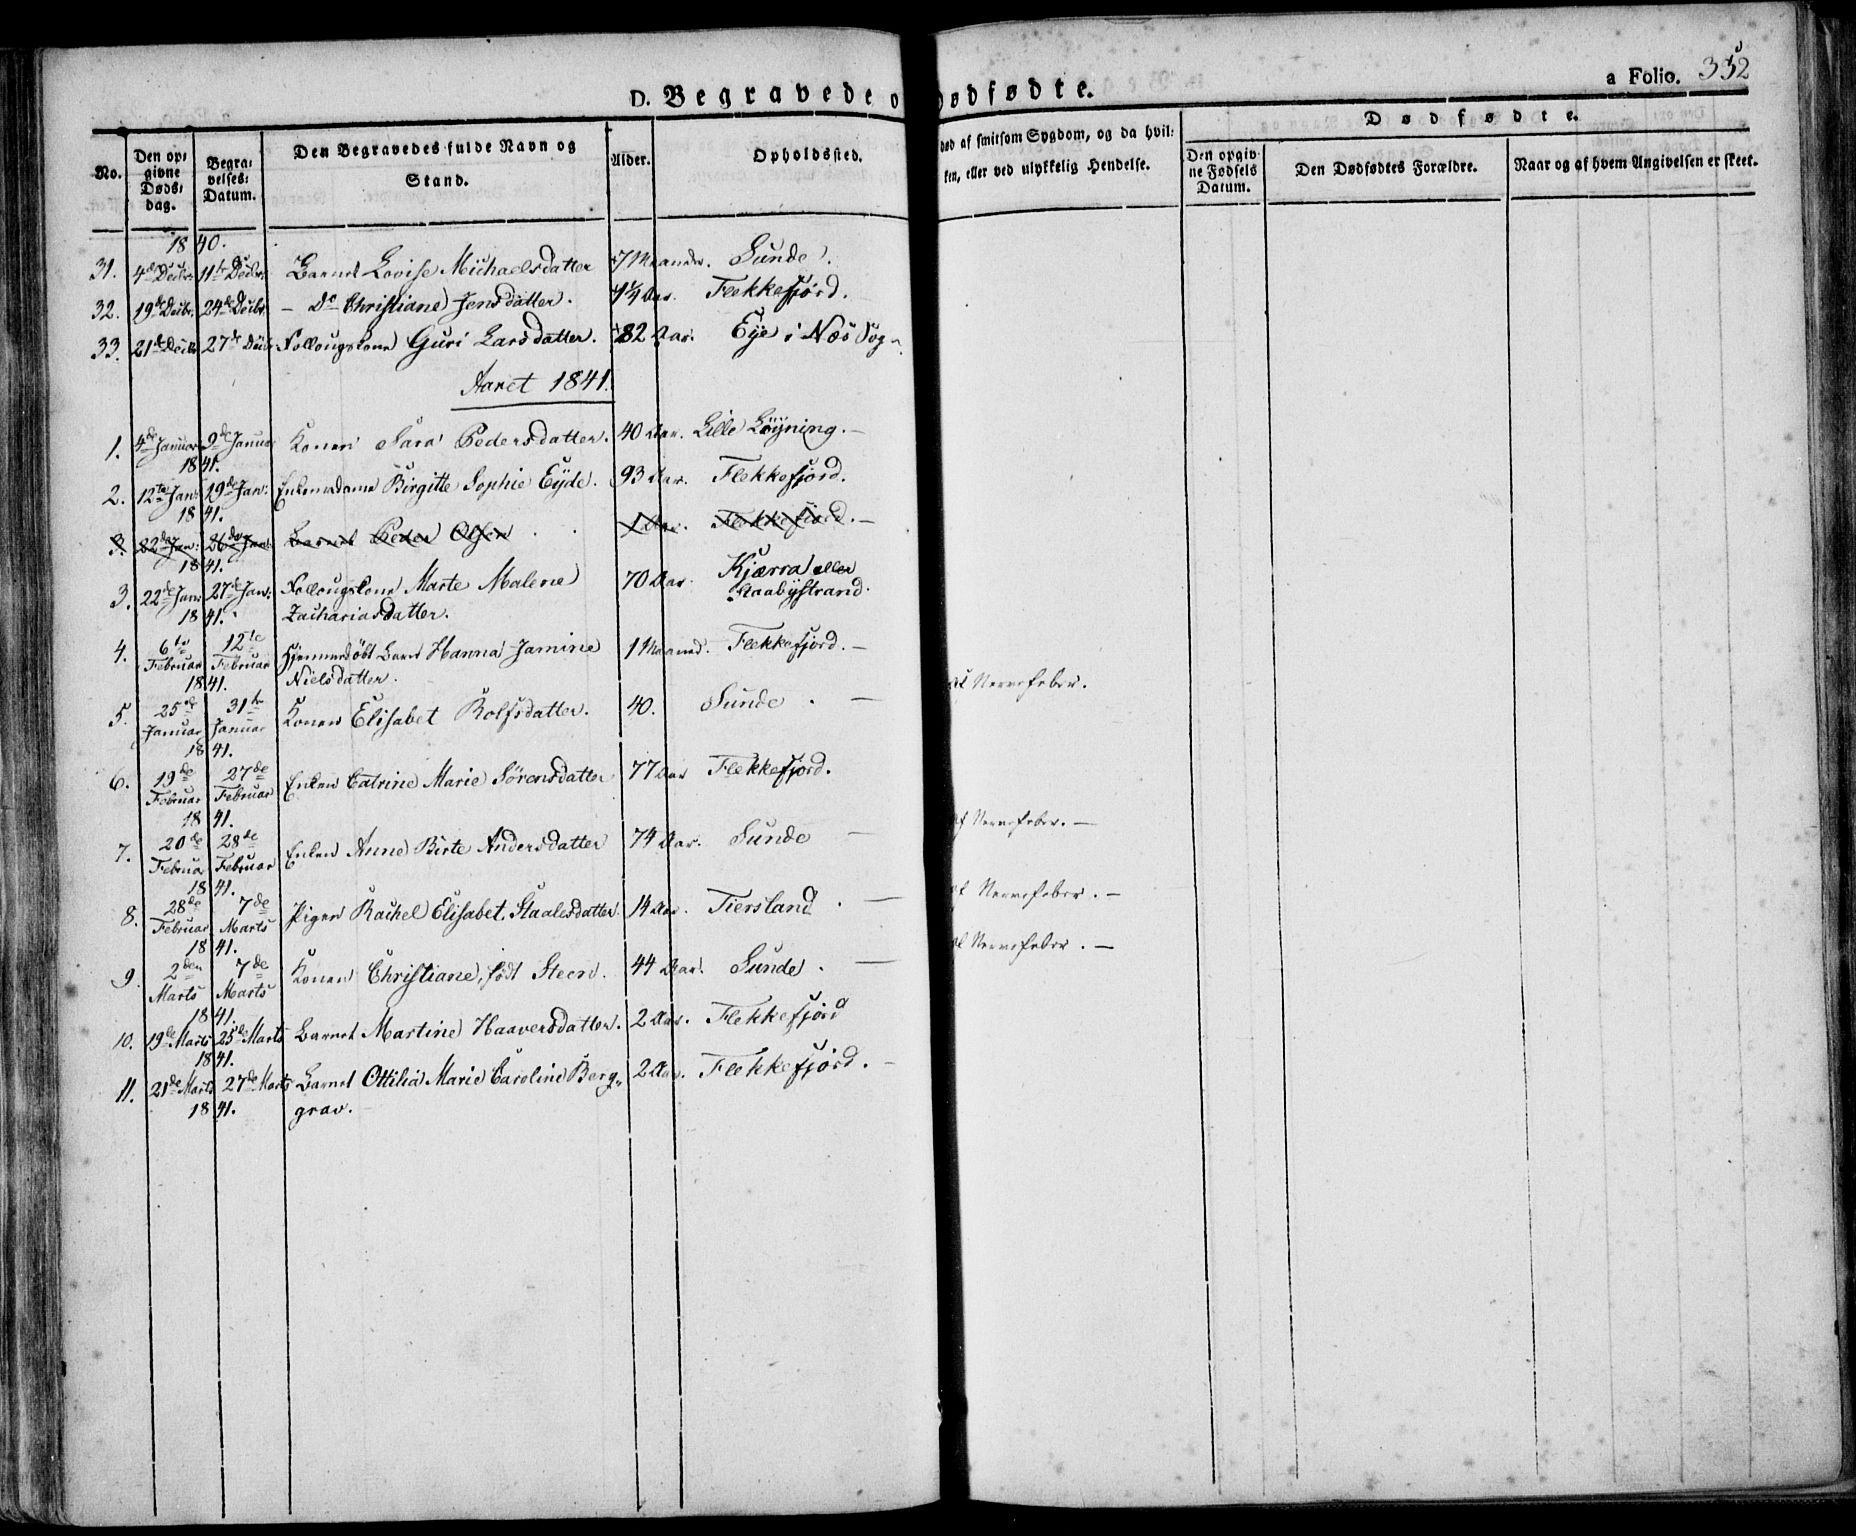 a Folio. 352
D. Begravede o
dødfødte.
No.
Den op:
givne
Døds:
dag.
Begra:
velses:
Datum.
Den Begravedes fulde Navn og
Stand.
Alder.
Opholdssted.
død af smitsom Sygdom, og da hvil:
ken, eller ved ulykkelig Hendelse.
Dødfødte.
Den opgiv
ne Fødsels
Datum.
Den Dødfødtes Forældre.
Naar og af hvem Angivelsen er skeet.
1840.
31. 4de Decbr: 11te Decbr: Barnet Lovise Michaelsdatter 7 Maaneder. Sunde.
32. 19de Decbr. 24de Decbr. – Do Christiane Jensdatter. 4¼ Aar. Flekkefjord.
33. 21de Decbr 27de Decbr Follougskone Guri Larsdatter. 82 Aar. Eye i Næs Sogn
Aaret 1841.
1. 4de Januar 9de Januar Konen Sara Pedersdatter. 40 Aar. Lille Løyning. –
1841.
2. 12te Jan: 19de Jan: Enkemadame Birgitte Sophie Eyde. 93 Aar. Flekkefjord.
1841.
3. 22de Jan: 26de Jan: Barnet Peder Olsen 1 Aar. Flekkefjord. –
1841.
3. 22de Jan: 27de Jan: Follougskone Marte Malene 70 Aar. Kjærra eller
1841. Zachariasdatter. Staabystrand.
4. 6te 12te Hjemmedøbt Barn Hanna Jamine 1 Maaned. Flekkefjord. –
Februar Februar
1841. Nielsdatter.
5. 25de 31te Konen Elisabet Rolfsdatter. 40. Sunde. – af Nervefeber.
Januar Januar
1841.
6. 19de 27de Enken Catrine Marie Sørensdatter 77 Aar Flekkefjord.
Februar Februar
1841.
7. 20de 28de Enken Anne Birte Andersdatter 74 Aar. Sunde – af Nervefeber. –
Februar Februar
1841.
8. 28de 7de Pigen Rachel Elisabet Staalesdatter 14 Aar. Tiersland. – af Nervefeber. –
Februar Marts
1841.
9. 2den 7de Konen Christiane, født Steen. 44 Aar. Sunde. – af Nervefeber. –
Marts Marts
1841.
10. 19de Marts 25de Marts Barnet Martine Haaversdatter. 2 Aar. Flekkefjord
1841.
11. 21de Marts 27de Marts Barnet Ottilia Marie Caroline Berg- 2 Aar. Flekkefjord. –
1841. grav. –